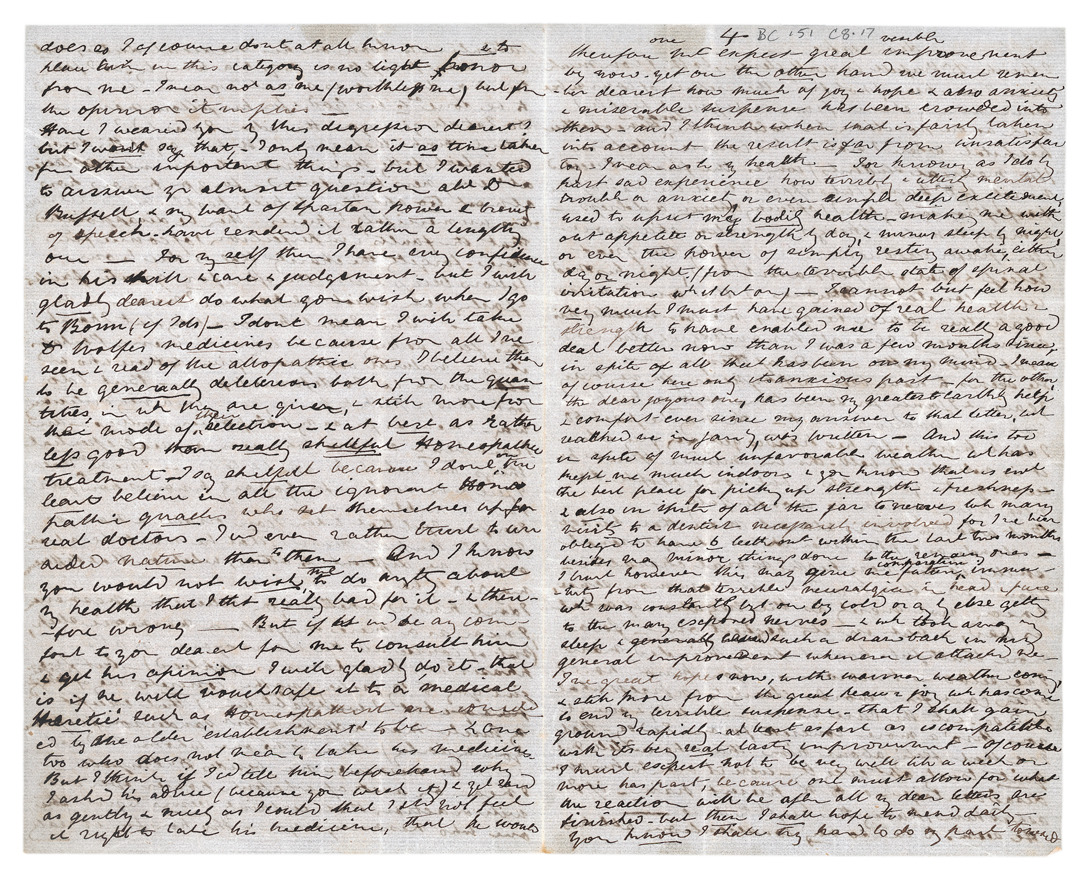 does so I of course dont at all know
place him in this category is no light honor
from me - I mean not as me (worthless me) but for
the opinion it implies.
Have I wearied you by this digression dearest?
but I won't say that, I only mean it as time taken
for other important things - but I wanted
to answer yr almost question abt Dr
Russell, & my want of spartan power & brevity
of speech have rendered it rather a lengthy
one — For myself then I have every confidence
in his skill & care & judgement, but I will
gladly dearest do what you wish when I go
to Bonn (if I do) — I dont mean I will take
Dr Wolfe's medicines because from all I've
seen & read of the allopathic ones I believe them
to be generally deleterious both from the quan
tities in wh they are given, & still more from
their mode of selection - & at best as rather
less good than really skillful Homeopathic
treatment - I say skilful because I don't
least believe in all the ignorant Homeo
pathic quacks who set themselves up for
real doctors - I wd even rather trust to un
aided nature than to them — And I know
you would not wish me to do anythg about
my health that I tht really bad for it - & there-
-fore wrong — But if it wd be any com-
fort to you dearest for me to consult him
& get his opinion I will gladly do it - that
is if he will vouchsafe it to a medical
'Heretic' such as Homeopathist are consid
ed by the older 'establishment' to be - & one
too who does not mean to take his medicine
But I think if I cd tell him beforehand why
I ask'd his advice (because you wish it) & yet said
as gently & nicely as I could that I shd not feel
it right to take his medicine, that he would
4 BC '51 C8.17
one visible
therefore not expect great improvement
by now - yet on the other hand we must remem
ber dearest how much of joy & hope & also anxiety
& miserable suspense has been crowded into
them - and I think when that is fairly taken
into account the result is far from unsatisfac
tory - I mean as to my health - For knowing as I do by
past sad experience how terribly mental
trouble or anxiety, or even simple deep excitement,
used to upset my bodily health - making me with
out appetite or strength by day, & minus sleep by night,
or even the power of simply resting awake, either
day or night, (from the terrible state of spinal
irritation wh it brt on) — I cannot but feel how
very much I must have gained of real health &
strength to have enabled me to be really a good
deal better now than I was a few months since
in spite of all that has been on my mind - I mean
of course here only its anxious part - for the other,
the dear joyous one, has been my greatest earthly help
& comfort ever since my answer to that letter, wh
reached me in Jany, was written — And this too
in spite of most unfavorable weather wh has
kept me much indoors & you know that is not
the best place for picking up strength & freshness -
& also in spite of all the jar to nerves wh many
visits to a dentist necessarily involved for I've been
obliged to have 6 teeth out within the last two months
besides many minor things done to the remaing ones —
I trust however this may give me comparative future immu-
-nity from that terrible neuralgia in head & face
wh was constantly brt on by cold or anythg else getting
to the many exposed nerves - & wh took away my
sleep & generally caused such a drawback in my
general improvement whenever it attacked me -
I've great hopes now, with warmer weather coming
& still more from the great peace & joy wh has come
to end my terrible suspense - that I shall gain
ground rapidly - at least as fast as is compatible
with its being real lasty improvement - Of course
I must expect not to be very well till a week or
more has past, because one must allow for what
the reaction will be after all my dear letters are
finished - but then I shall hope to mend daily
You know I shall try hard to do my part toward